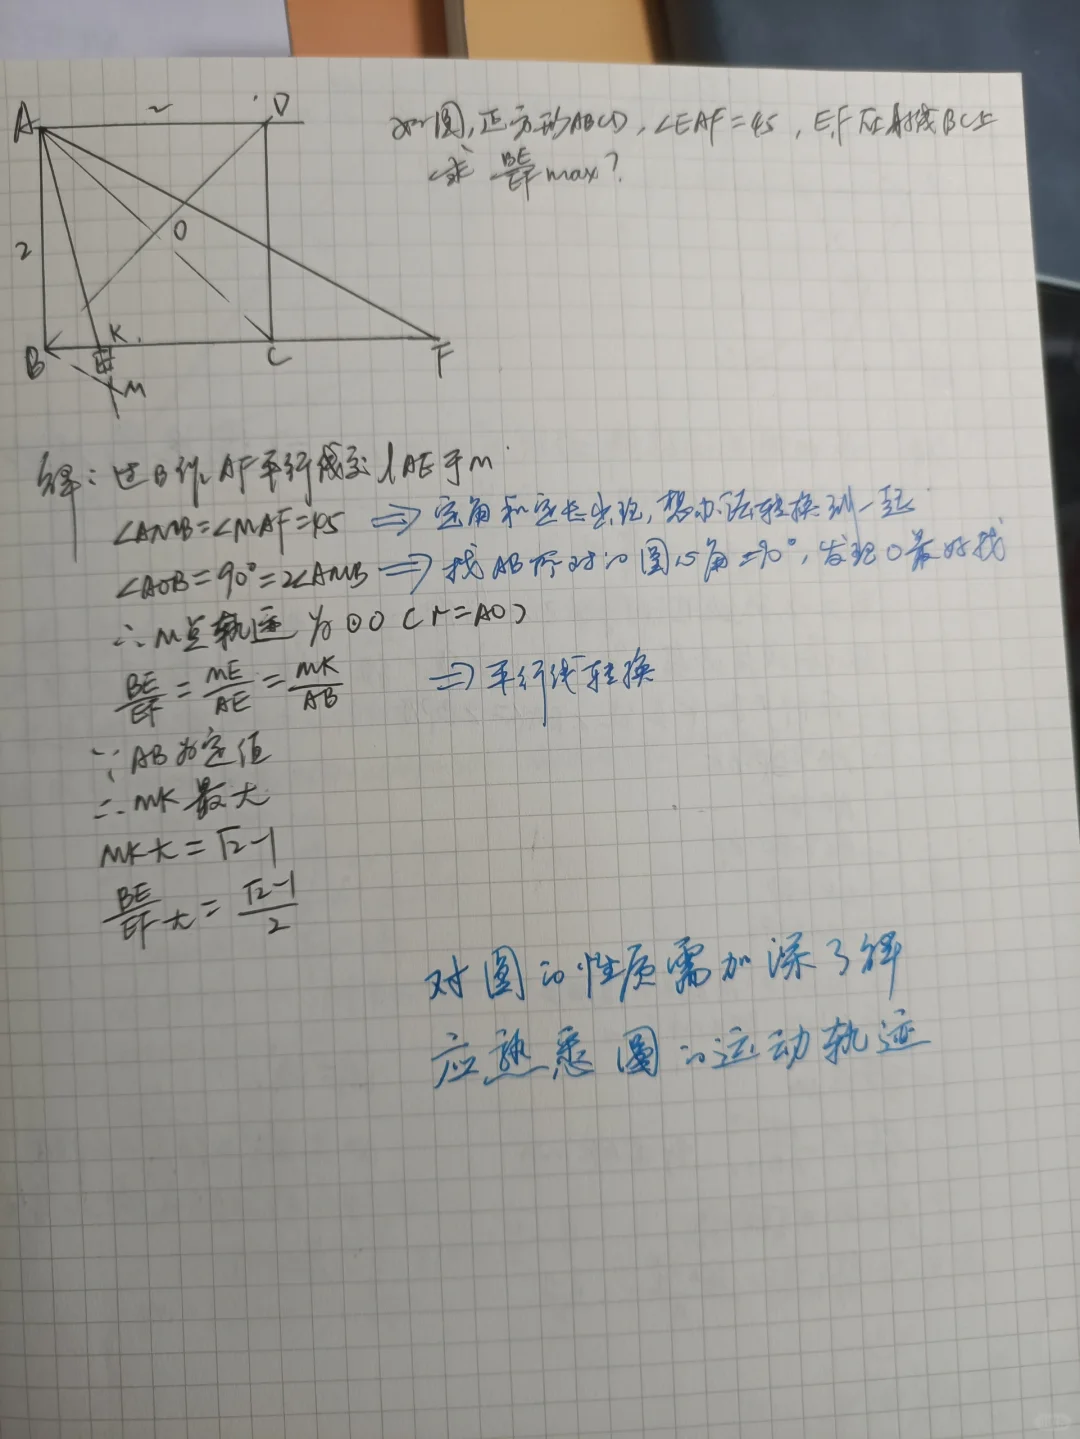 如图,正方形ABCD,∠EAF=45,E,F在射线BC上
求 BE/EF max?
A 2 D
2
O
K
B E C F
M
解:过B作AF平行线交lAE于M
∠AMB=∠MAF=45 ⇒定角和定长出现,想办法转换到一起
∠AOB=90°=2∠AMB ⇒找AB所对的圆心角=90°,发现O最好找
∴M点轨迹为⊙O(r=AO)
BE/EF=ME/AE=MK/AB ⇒平行线转换
∵AB为定值
∴MK最大
MK大=√2-1
BE/EF大=√2-1/2
对圆的性质需加深了解
应熟悉圆的运动轨迹